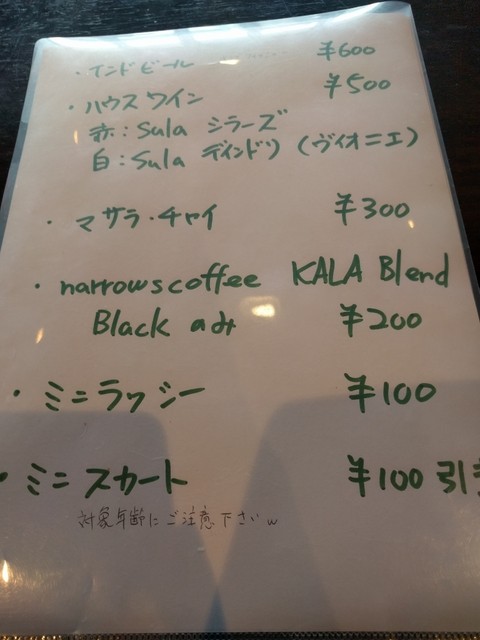 ・インドビール ¥600
・ハウスワイン ¥500
赤:Sula シラーズ
白:Sula デインドリ (ヴィオニエ)
・マサラ・チャイ ¥300
・narrows coffee KALA Blend
Black のみ ¥200
・ミニラッシー ¥100
・ミニスカート ¥100引き
対象年齢にご注意下さいw